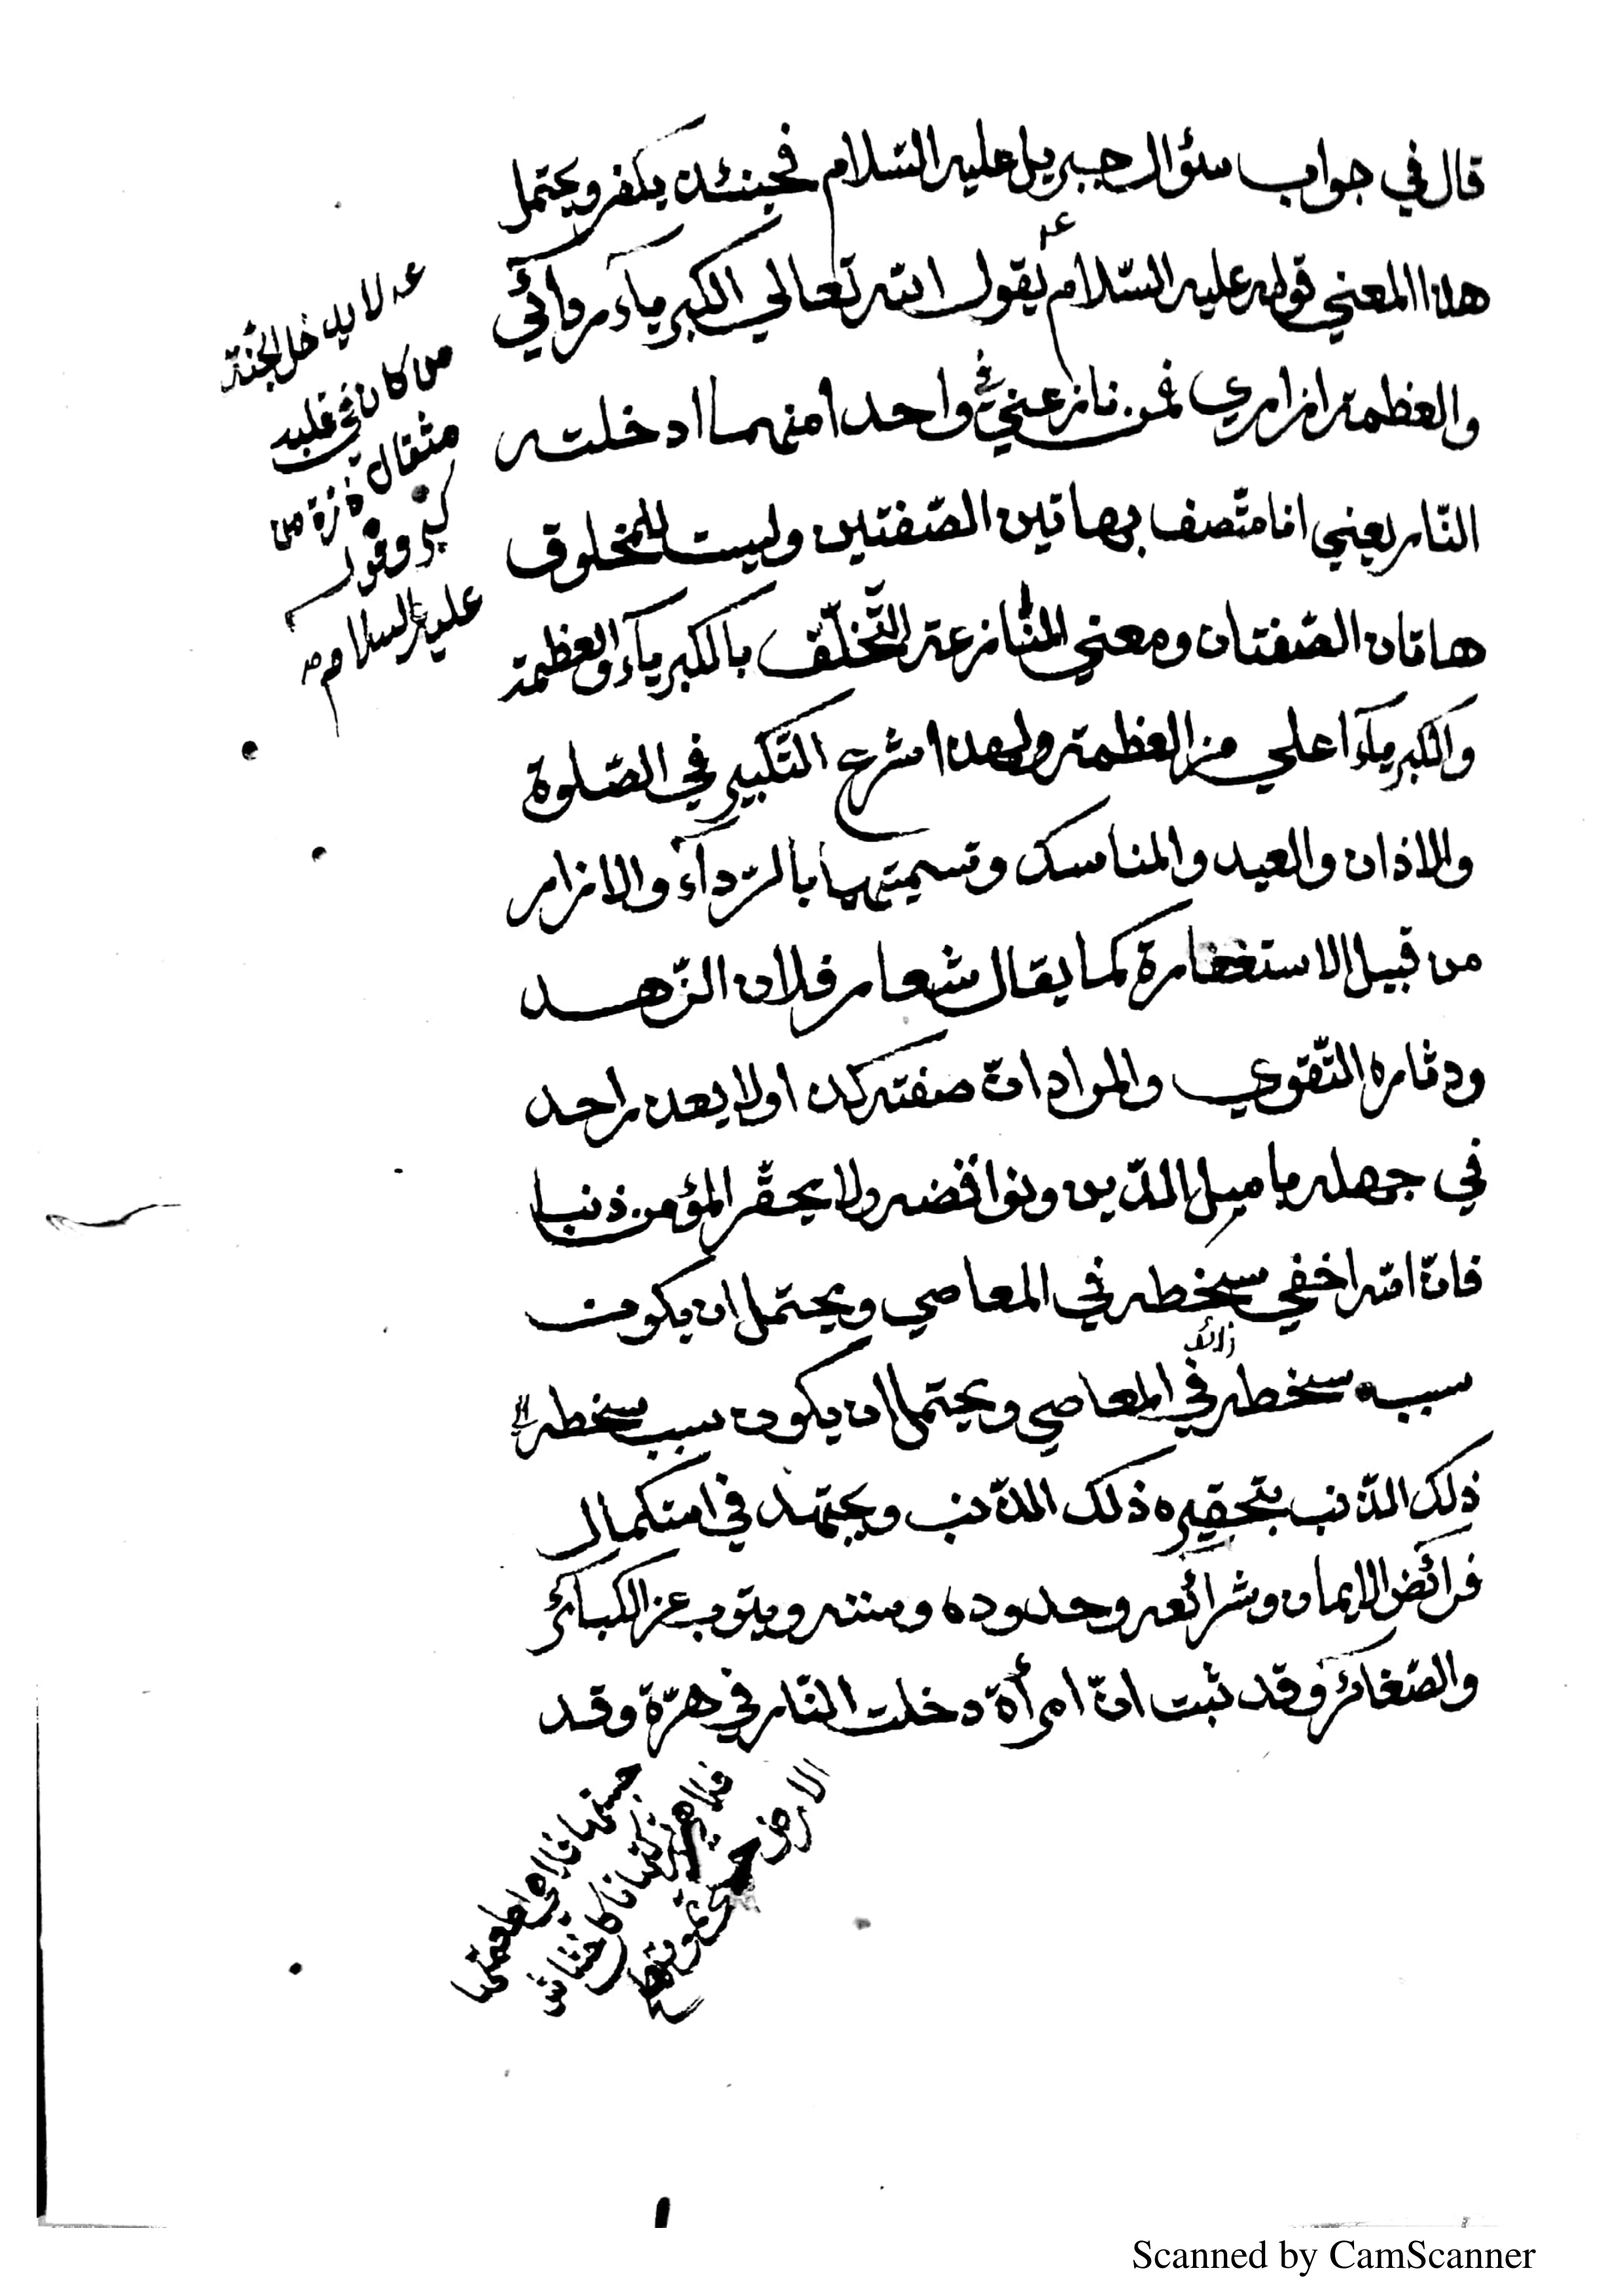 قال في جواب سؤال جبريل عليه السّلام فحينئذ يكفر ويحتمل
هذا المعني قوله عليه السّلام يقول الله تعالي الكبرياء ردائي
والعظمة ازاري فمن نازعني في واحدا منهما ادخلته
النّار يعني انا متّصف بهاتين الصّفتين وليست للمخلوق
هاتان الصّفتان ومعني المنازعة التّخلّق بالكبرياء والعظمة
والكبرياء اعلي من العظمة ولهذا شرع التّكبير في الصّلوة
والاذان والعيد والمناسك وتسميتها بالرّداء والازار
من قبيل الاستعارة كما يقال شعار فلان الزّهد
ودثاره التّقوي والمراد انّ صفته كذا ولا يعذر احد
في جهله بامر الدّين ونواقضه ولا يحقّر المؤمن ذنبا
فانّ الله اخفي سخطه في المعاصي ويحتمل ان يكون
سبب سخطه في المعاصي ويحتمل ان يكون سبب سخطه
زائد
ذلك الذّنب بتحقيره ذلك الذّنب ويجتهد في استكمال
فرائض الايمان وشرائعه وحدوده وسننه ويتوب عن الكبائر
والصّغائر وقد ثبت انّ امرأة دخلت النّار في هرّة وقد
عه لا يدخل الجنّة
من كان في قلبه
مثقال ذرّة من
كبر وقول
عليه السلام
حبستها فلا هي اطعمتها
الارض
Scanned by CamScanner